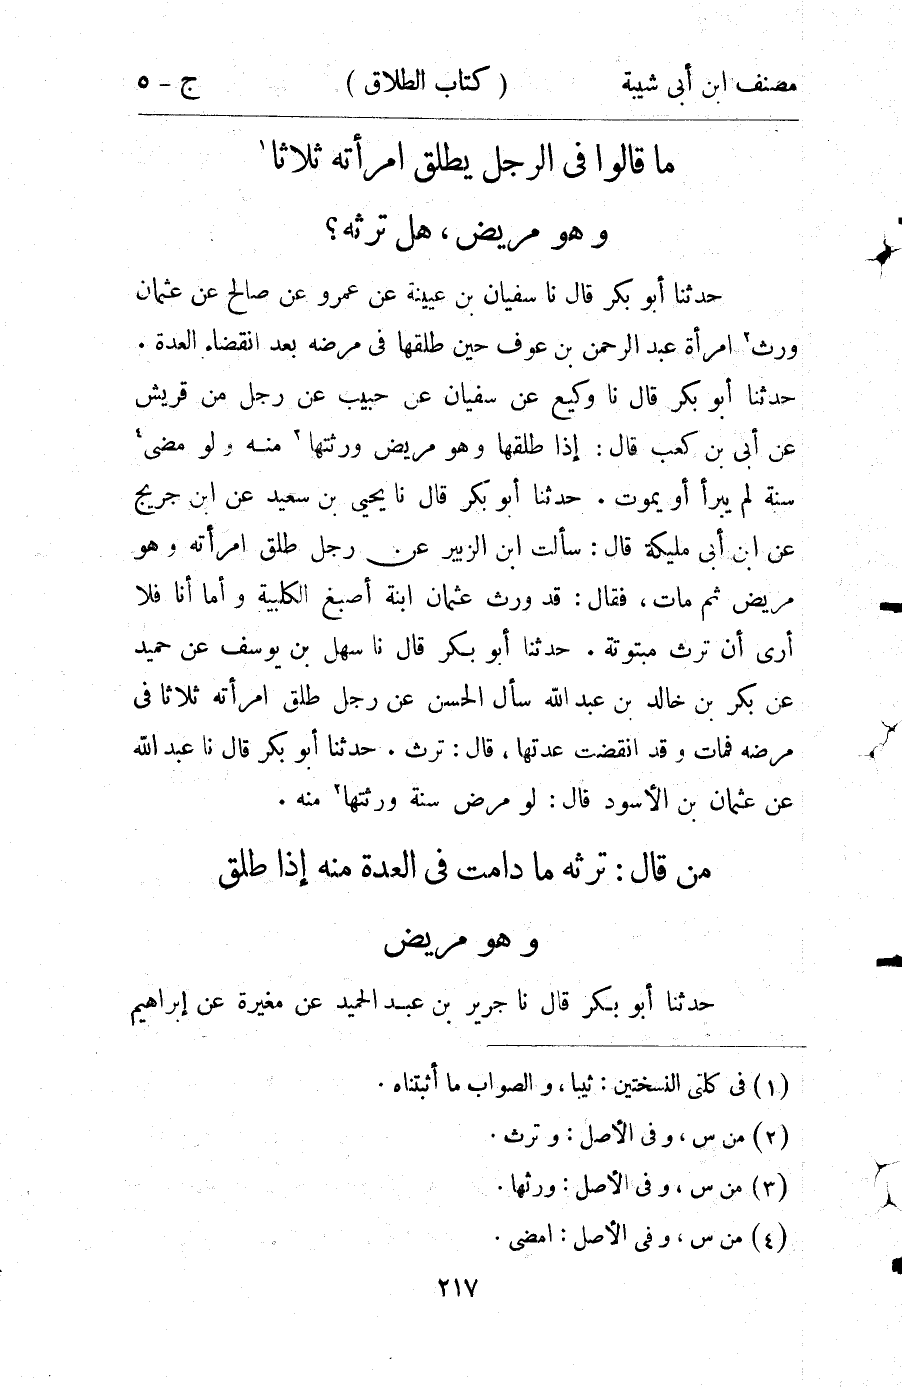 مصنف ابن أبى شيبة ( كتاب الطلاق ) ج - ٥
ما قالوا فى الرجل يطلق امرأته ثلاثا١
و هو مريض ، هل ترثه ؟
حدثنا أبو بكر قال نا سفيان بن عيينة عن عمرو عن صالح عن عثمان
ورث٢ امرأة عبد الرحمن بن عوف حين طلقها فى مرضه بعد انقضاء العدة .
حدثنا أبو بكر قال نا وكيع عن سفيان عن حبيب عن رجل من قريش
عن أبى بن كعب قال : إذا طلقها و هو مريض ورثتها٣ منه و لو مضى٤
سنة لم يبرأ أو يموت . حدثنا أبو بكر قال نا يحيى بن سعيد عن ابن جريج
عن ابن أبى مليكة قال : سألت ابن الزبير عن رجل طلق امرأته و هو
مريض ثم مات ، فقال : قد ورث عثمان ابنة أصبغ الكلبية و أما أنا فلا
أرى أن ترث مبتوتة . حدثنا أبو بكر قال نا سهل بن يوسف عن حميد
عن بكر بن خالد بن عبد الله سأل الحسن عن رجل طلق امرأته ثلاثا فى
مرضه فمات و قد انقضت عدتها ، قال : ترث . حدثنا أبو بكر قال نا عبد الله
عن عثمان بن الأسود قال : لو مرض سنة ورثتها٣ منه .
من قال : ترثه ما دامت فى العدة منه إذا طلق
و هو مريض
حدثنا أبو بكر قال نا جرير بن عبد الحميد عن مغيرة عن إبراهيم
(١) فى كلتى النسختين : ثيبا ، و الصواب ما أثبتناه .
(٢) من س ، و فى الأصل : و ترث .
(٣) من س ، و فى الأصل : ورثها .
(٤) من س ، و فى الأصل : امضى .
٢١٧